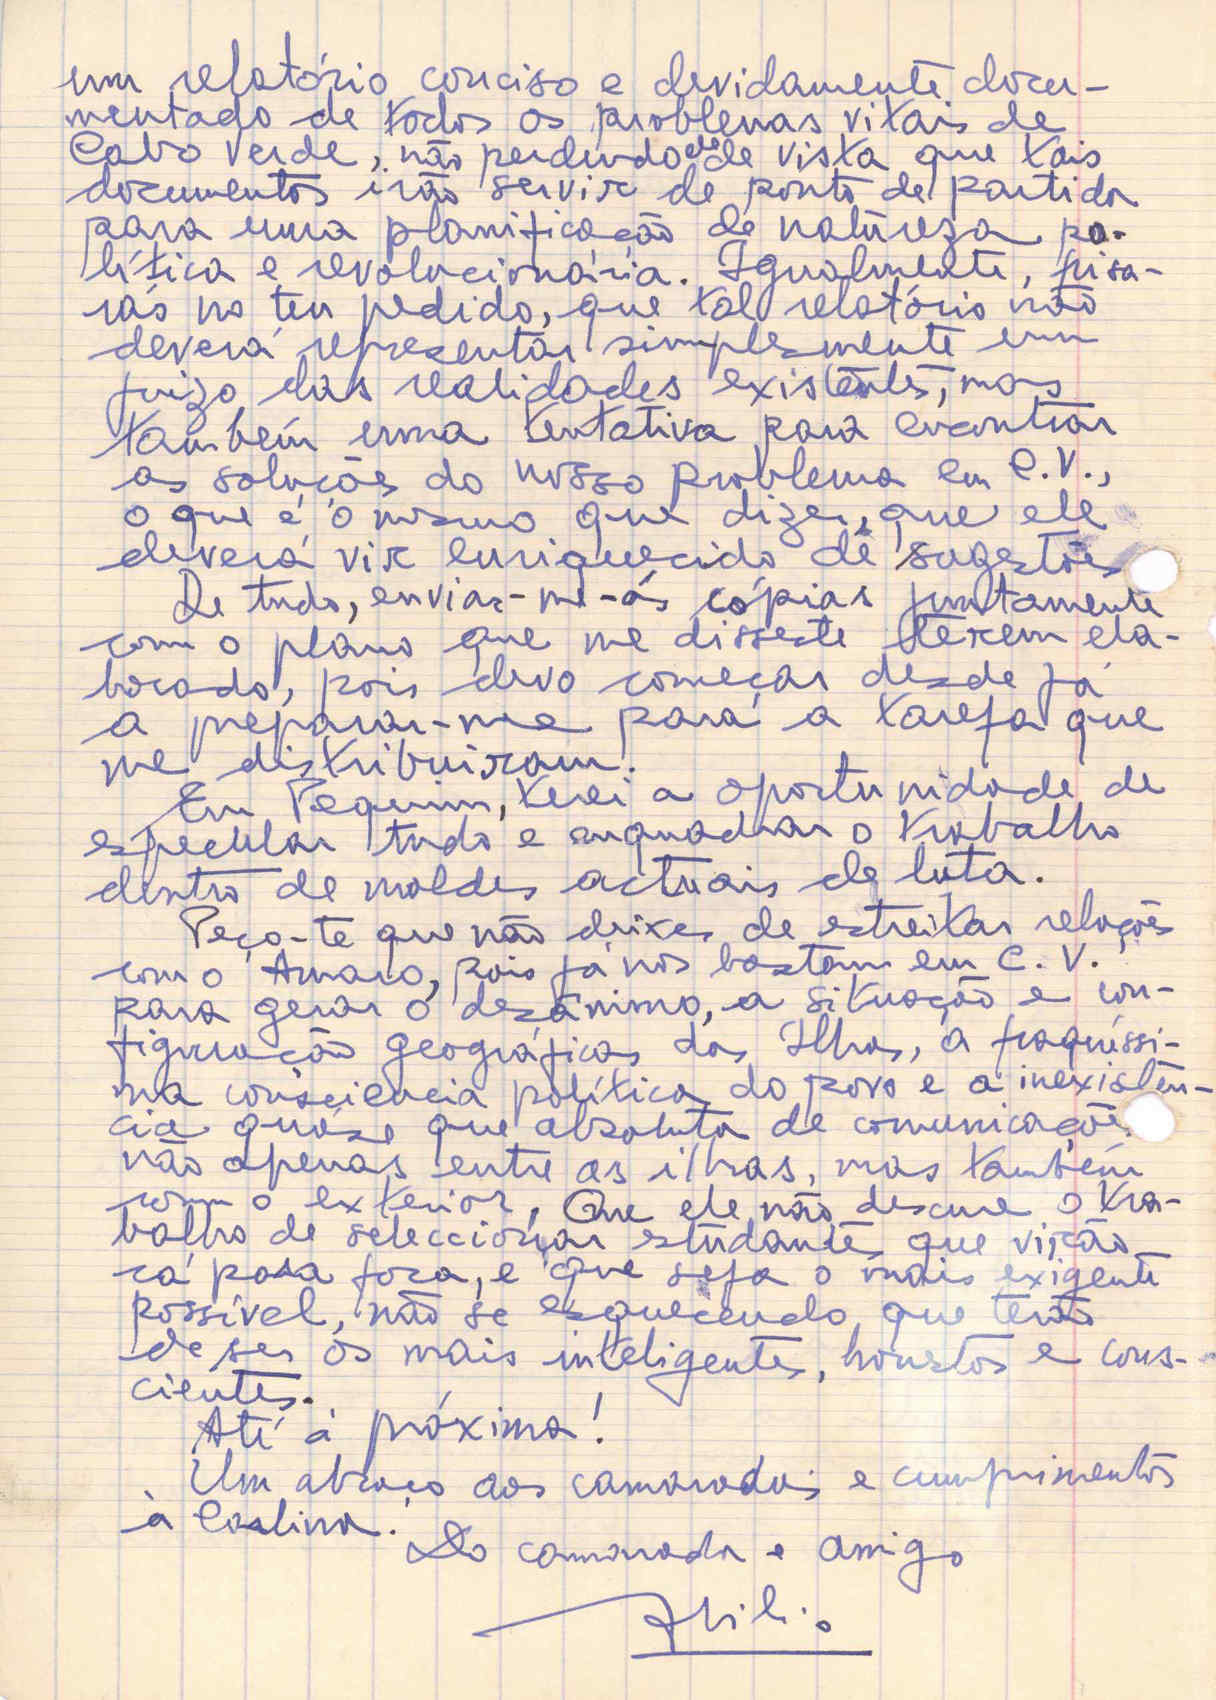 um relatório conciso e devidamente docu-
mentado de todos os problemas vitais de
Cabo Verde, não perdendo de vista que tais
documentos irão servir de ponto de partida
para uma planificação de natureza po-
lítica e revolucionária. Igualmente, frisa-
rás no teu pedido, que tal relatório não
deverá representar simplesmente um
juizo das realidades existentes, mas
também uma tentativa para encontrar
as soluções do nosso problema em C.V.,
o que é o mesmo que dizer, que ele
deverá vir enriquecido de sugestões
De tudo, enviar-me-ás cópias juntamente
com o plano que me disseste terem ela-
borado, pois devo começar desde já
a preparar-me para a tarefa que
me distribuiram.
Em Pequim, terei a oportunidade de
especular tudo e enquadrar o trabalho
dentro de moldes actuais de luta.
Peço-te que não deixes de estreitar relações
com o Amaro, pois já nos bastam em C.V.
para gerar o desânimo, a situação e con-
figuração geográficas das Ilhas, a fraquíssi-
ma consciência política do povo e a inexistên-
cia quáse que absoluta de comunicações
não apenas entre as ilhas, mas também
com o exterior. Que ele não descure o tra-
balho de seleccionar estudantes que virão
cá para fora, e que seja o mais exigente
possível, não se esquecendo que terão
de ser os mais inteligentes, honestos e cons-
cientes.
Até à próxima!
Um abraço aos camaradas e cumprimentos
à Carlina.
Do camarada e amigo
Abílio